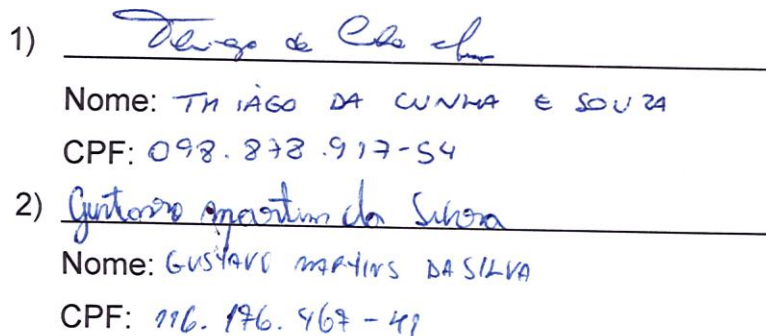 1) Thiago da
Nome: THIAGO DA CUNHA E SOUZA
CPF: 098.878.917-54
2) Gustavo Martins da Silva
Nome: GUSTAVO MARTINS DA SILVA
CPF: 116.176.467-41